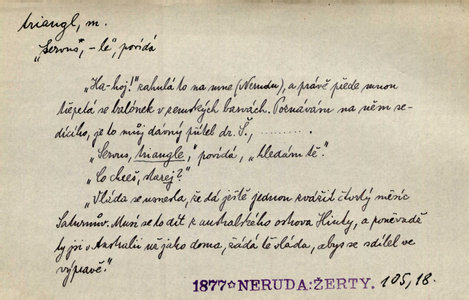 triangl, m.
„Servus", -le", povídá
„Ha-hoj!" zahulá to na mne (Nerudu), a právě přede mnou
třepetá se balónek v zemských barvách. Poznávám na něm se-
dícího, je to můj dávný přítel dr. Š., ..........
„Servus, triangle," povídá, „hledám tě."
„Co chceš, starej?"
„Vláda se usnesla, že dá ještě jednou zvážit čtvrtý měsíc
Saturnův. Musí se to dít z australského ostrova Hiuty, a poněvadž
ty jsi v Australii už jako doma, žádá tě vláda, abys se sdílel ve
výpravě."
1877 NERUDA: ŽERTY. 105,18.